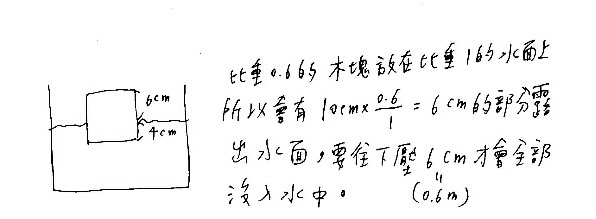 6cm
4cm
比重0.6的木塊放在比重1的水面上
所以會有10cm×0.6/1=6cm的部分露
出水面,要往下壓6cm才會全部
沒入水中。
(0.6m)